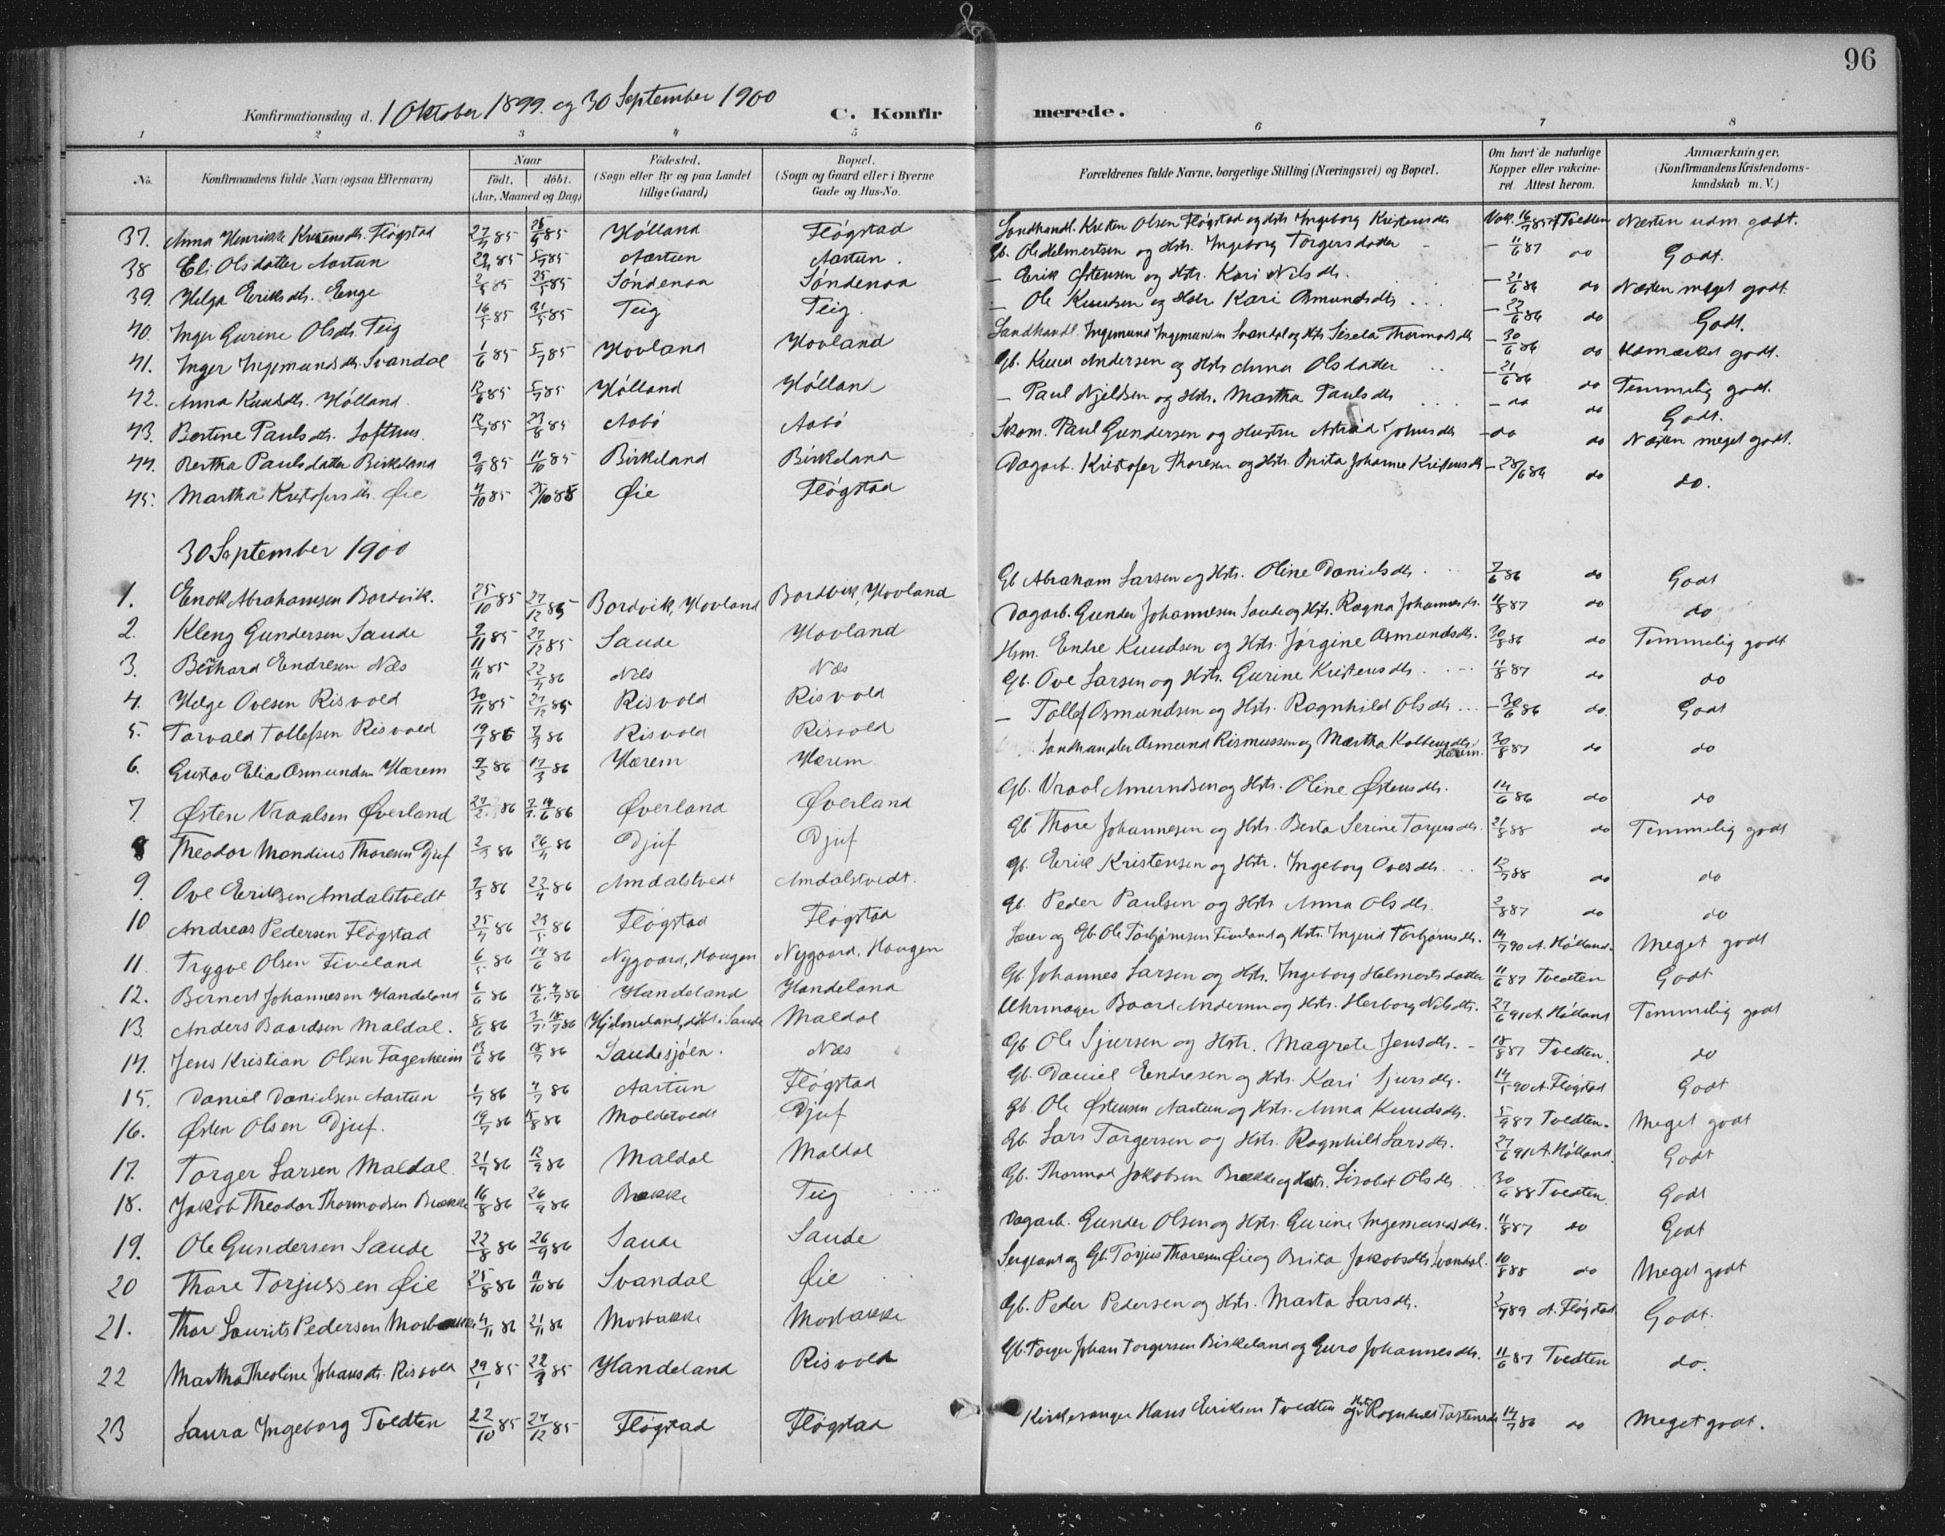 96
Konfirmationsdag d. 1 Oktober 1899. og 30 September 1900
C. Konfirmerede.
1 2 3 4 5 6 7 8
No. Konfirmandens fulde Navn (ogsaa Efternavn) Naar født, døbt. (Aar, Maaned og Dag) Fødested. (Sogn eller By og paa Landet tillige Gaard) Bopæl. (Sogn og Gaard eller i Byerne Gade og Hus-No. Forældrenes fulde Navne, borgerlige Stilling (Næringsvei) og Bopæl. Om havt de naturlige Kopper eller vakcineret. Attest herom. Anmærkninger. (Konfirmandens Kristendomskundskab m. V.)
37. Anna Henrikke Kristensdtr. Fløgstad Hølland Fløgstad Landhandl. Kristen Olsen Fløgstad og Hstr Ingeborg Kristensdtr Næsten udm. godt.
38 Eli Olsdatter Aartun Aartun Aartun. Gb. Ole Helmertsen og Hstr. Ingeborg Torgersdatter 11/6 87 do Godt.
39. Helga Eriksdtr. Enge 25/5 85 Søndenaa Søndenaa – Erik Østensen og Hstr. Kari Nilsdtr. 21/6 86 do Næsten meget godt.
40. Inger Gurine Olsdtr. Teig 16/5 85 31/5 85 Teig Teig. – Ole Knudsen og Hstr Kari Osmundsdtr do Godt.
41. Inger Ingemundsdtr. Svandal 1/6 85 5/7 85 Hovland Hovland Landhandl. Ingemund Ingemundsen Svandal og Hstr Sisela Thormodsdtr 30/6 86 do Udmærket godt.
42. Anna Knudsdtr. Hølland. 12/6 85 5/7 85 Hølland Hølland Gb. Knud Andersen og Hstr Anna Olsdatter 21/6 86 do Temmelig godt.
43. Bertine Paulsdtr. Lofthus. 12/7 85 23/8 85 Aabø Aabø – Paul Njeldsen og Hstr. Martha Paulsdtr – do do Godt.
44. Bertha Paulsdatter Birkeland 9/9 85 11/10 85 Birkeland Birkeland Skom. Paul Gundersen og Hustru Astrid Johnsdtr – do do Næsten meget godt.
45. Martha Kristofersdtr. Øie 4/10 85 Øie Fløgstad Dagarb. Kristofer Thoresen og Hstr. Brita Johanne Kristensdtr – 28/6 86 do do.
30 September 1900
1. Enok Abrahamsen Bordvik. 25/10 85 27/12 85 Bordvik, Hovland Bordvik, Hovland Gb Abraham Larsen og Hstr. Oline Danielsdtr. 7/6 86 do Godt
2. Kleng Gundersen Saude 9/11 85 27/12 85 Saude Hovland Dagarb. Gunder Johannesen Saude og Hstr. Ragna Johannesdtr. 11/8 87 do do
3. Bernhard Endresen Næs 11/11 85 22/4 86 Næs Næs Hsm. Endre Knudsen og Hstr. Jørgine Osmundsdtr. 30/8 86 do Temmelig godt
4. Helge Ovesen Risvold 30/11 85 27/12 85 Risvold Risvold Gb. Ove Larsen og Hstr. Gurine Kristensdtr. 11/8 87 do do
5. Torvald Tollefsen Risvold 19/1 86 7/3 86 Risvold Risvold – Tollef Osmundsen og Hstr. Ragnhild Olsdtr. – 30/6 86 do. Godt
6. Gustav Elias Osmundsen Hærem 9/2 86 17/3 86 Hærem Hærem Landhandler Osmund Rasmussen og Martha Kolbensdtr. Hærem. 30/8 87 do do
7. Østen Vraalsen Øverland 27/2 86 Øverland Øverland Gb. Vraal Amundsen og Hstr. Oline Østensdtr. 14/6 86 do do
8 Theodor Mondius Thoresen Djuf 2/3 86 26/4 86 Djuf Djuf Gb Thore Johannesen og Hstr. Berta Serine Torgersdtr. 21/8 88 do Temmelig godt
9. Ove Eriksen Amdalstvedt 9/3 86 22/4 86 Amdalstvedt Amdalstvedt. Gb. Erik Kristensen og Hstr. Ingeborg Ovesdtr. 12/7 88 do do
10 Andreas Pedersen Fløgstad 25/4 86 23/5 86 Fløgstad Fløgstad Gb. Peder Paulsen og Hstr Anna Olsdtr. 2/8 87 do do
11. Trygve Olsen Fiveland 6/5 86 14/6 86 Nygaard, Haugen Nygaard, Haugen Lærer og Gb. Ole Torbjørnsen Fiveland og Hstr. Ingerid Torbjørnsdtr. 14/7 90 A. Hølland. Meget godt
12. Bernert Johannesen Handeland 6/6 86 Handeland Handeland Gb. Johannes Larsen og Hstr. Ingeborg Helmertsdatter 11/6 87 Tvedten Godt
13. Anders Baardsen Maldal. 8/6 86 Hjelmeland, døbt i Saude Maldal Uhrmager Baard Andersen og Hstr. Herborg Nilsdtr. 27/6 91 A. Hølland Temmelig godt
14. Jens Kristian Olsen Fagerheim 13/6 86 18/7 86 Saudesjøen. Næs Gb Ole Sjursen og Hstr. Magrete Jensdtr. 18/8 87 Tvedten. do
15. Daniel Danielsen Aartun 1/7 86 4/7 86 Aartun Fløgstad Gb. Daniel Endresen og Hstr. Kari Sjursdtr. 14/1 90 A. Fløgstad Godt
16. Østen Olsen Djuf. 19/7 86 15/8 86 Moldetvedt Djuf Gb. Ole Østensen Aartun og Hstr. Anna Knudsdtr. 5/9 87 Tvedten. Meget godt
17. Torger Larsen Maldal. 21/7 86 12/9 86 Maldal Maldal Gb. Lars Torgersen og Hstr. Ragnhild Larsdtr. 27/6 91 A. Hølland. Godt
18. Jakob Theodor Thormodsen Brække 16/8 86 26/9 86 Brække Teig Gb. Thormod Jakobsen Brække og Hstr. Lisabet Olsdtr 30/6 88 Tvedten. Godt
19. Ole Gundersen Saude 22/8 86 26/9 86 Saude Saude Dagarb. Gunder Olsen og Hstr. Gurine Ingemundsdtr. 11/8 87 do Godt
20 Thore Torjussen Øie 25/8 86 11/10 86 Svandal Øie Sergeant og Gb. Torjus Thoresen Øie og Brita Jakobsdtr Svandal. 10/8 88 do Meget godt
21. Thor Laurits Pedersen Mosbække 4/11 86 21/11 86 Mosbække Mosbække Gb. Peder Pedersen og Hstr. Marta Larsdtr. 2/7 89 A. Fløgstad Godt.
22 Martha Theoline Johansdtr. Risvold 29/1 85 22/3 85 Handeland Risvold Gb. Torger Johan Torgersen Birkeland og Guro Johannesdtr. 11/6 87 Tvedten do.
23 Laura Ingeborg Tvedten 22/10 85 27/12 85 Fløgstad Fløgstad Kirkesanger Hans Eriksen Tvedten og Hstr Ragnhild 14/7 86 do Meget godt.